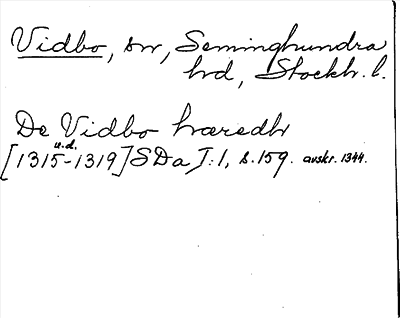 Vidbo, sn, Seminghundra
hd, Stockh. l.
De Vidbo hæredh
u.d.
[1315-1319] SDa I:1, s. 159. avskr. 1344.